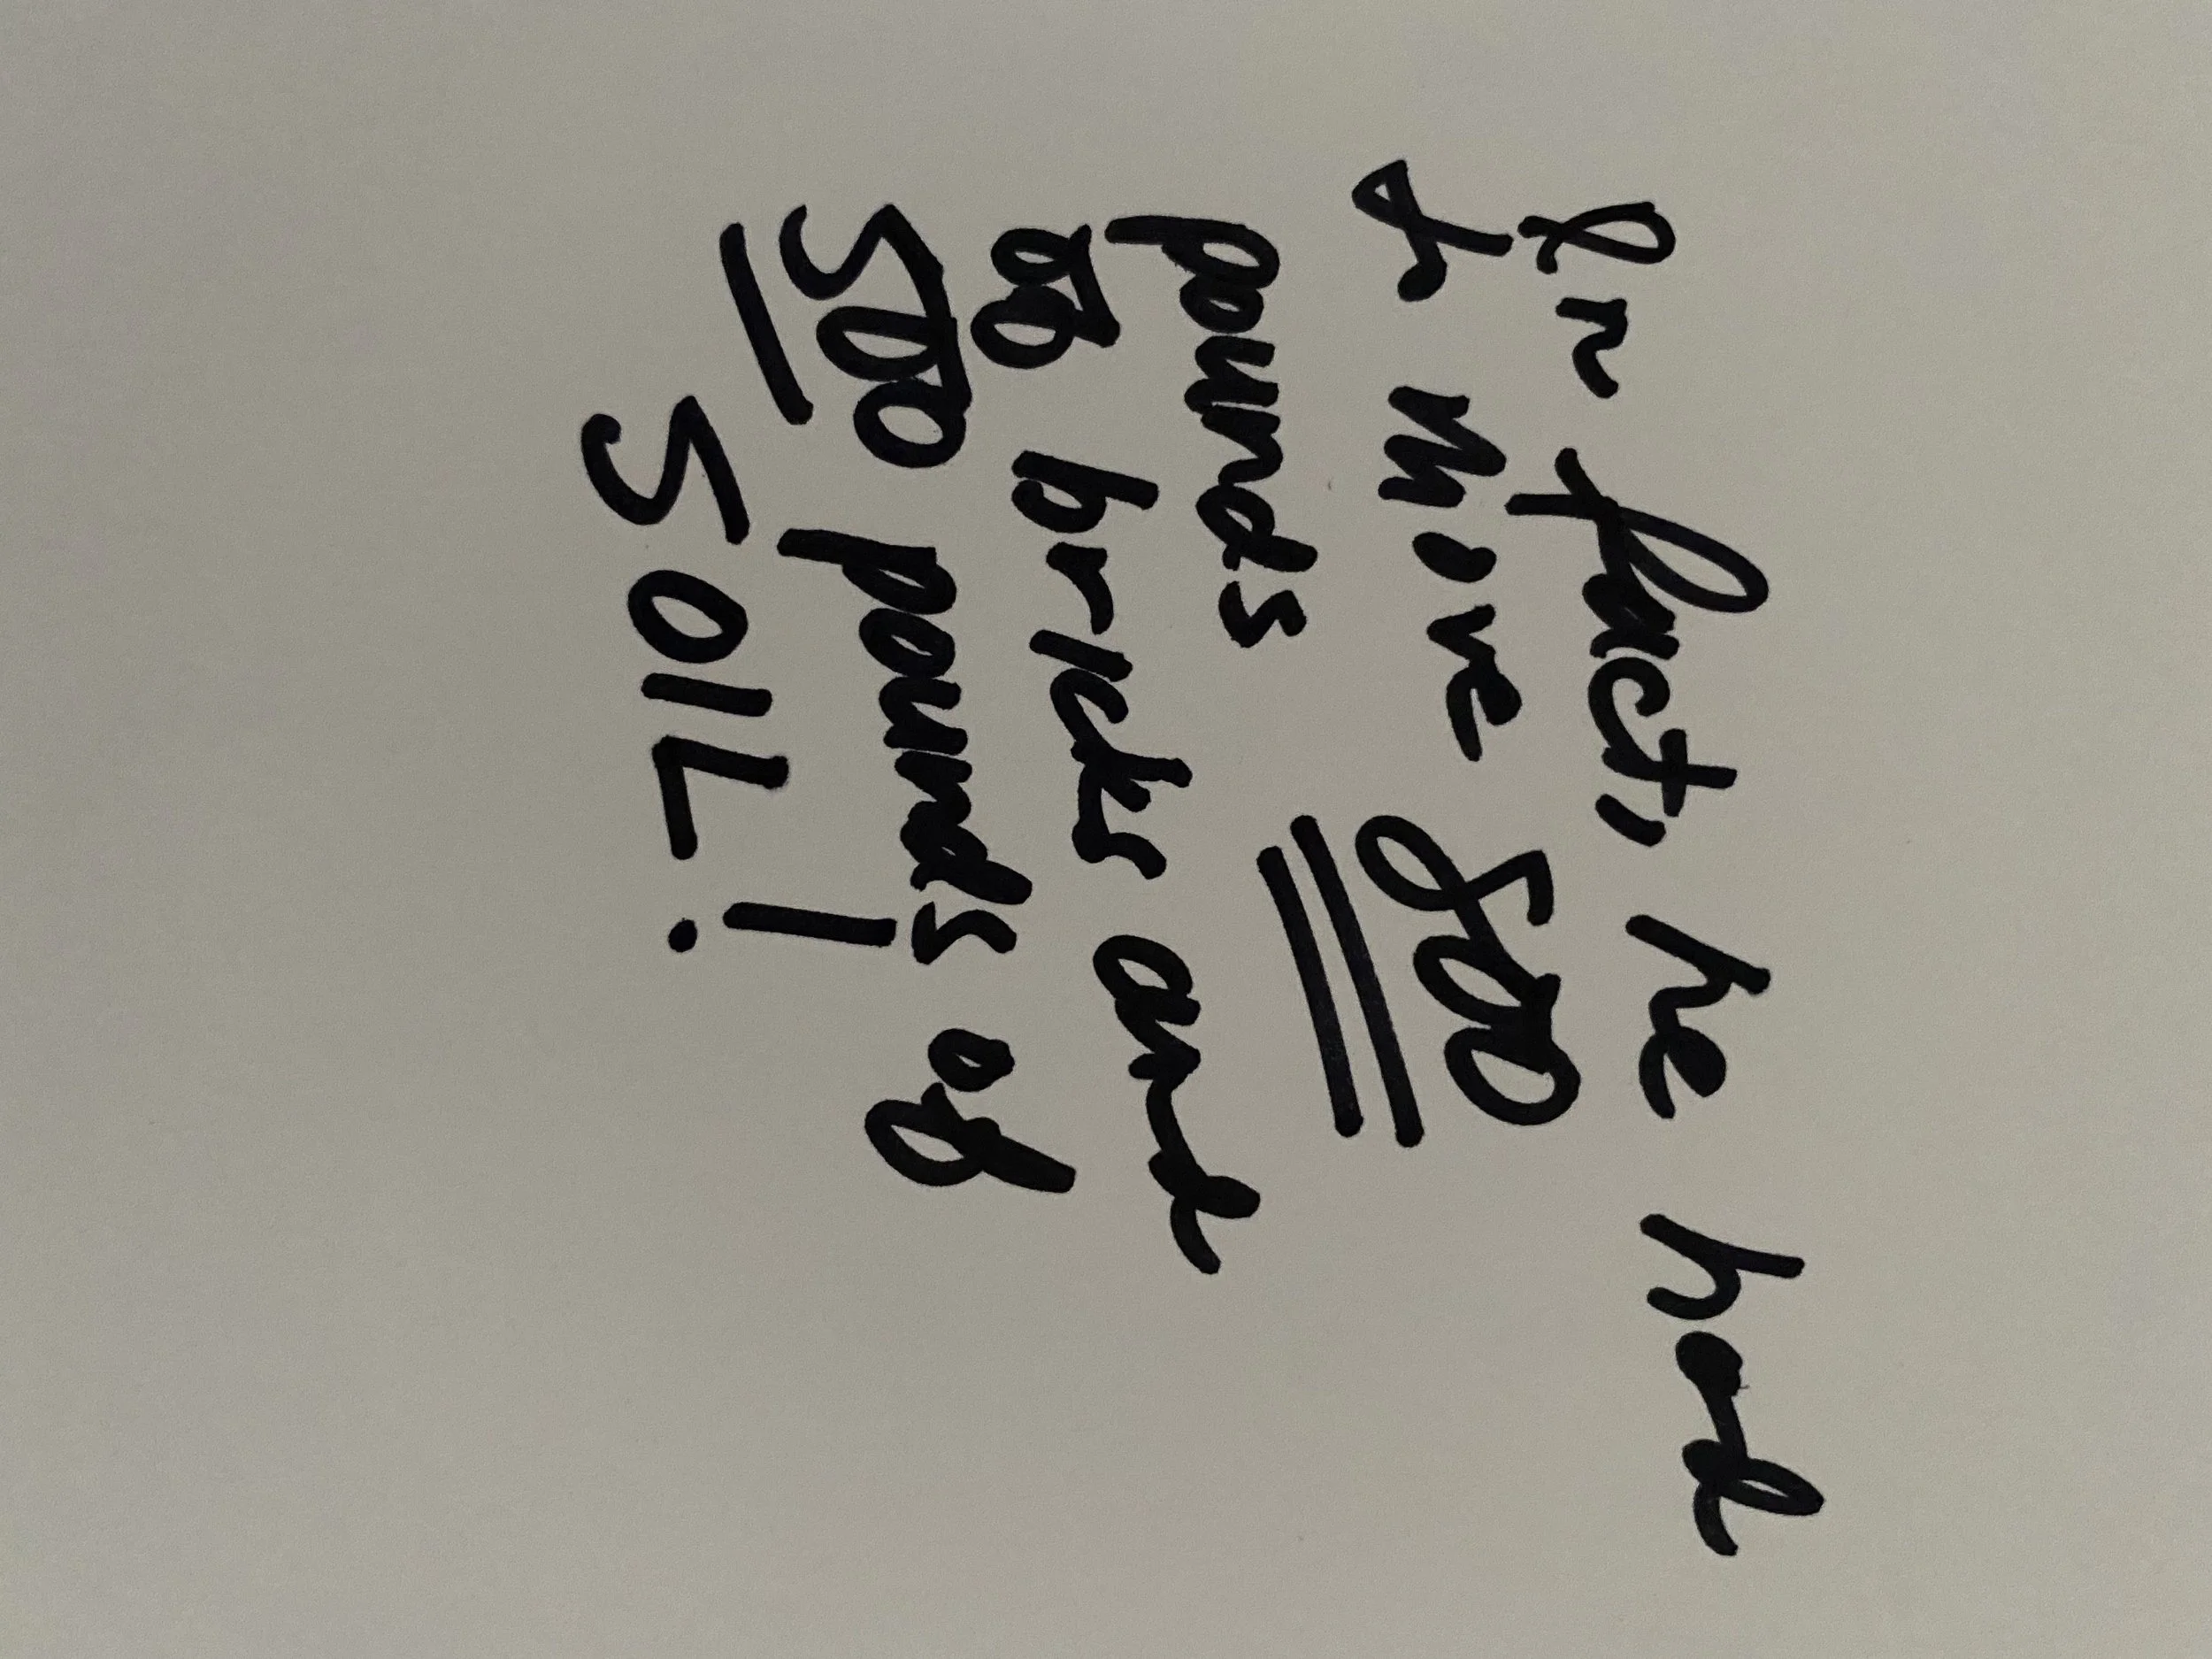 In fact, he had
to move 500
pounds
of bricks and
500 pounds of
SOIL!